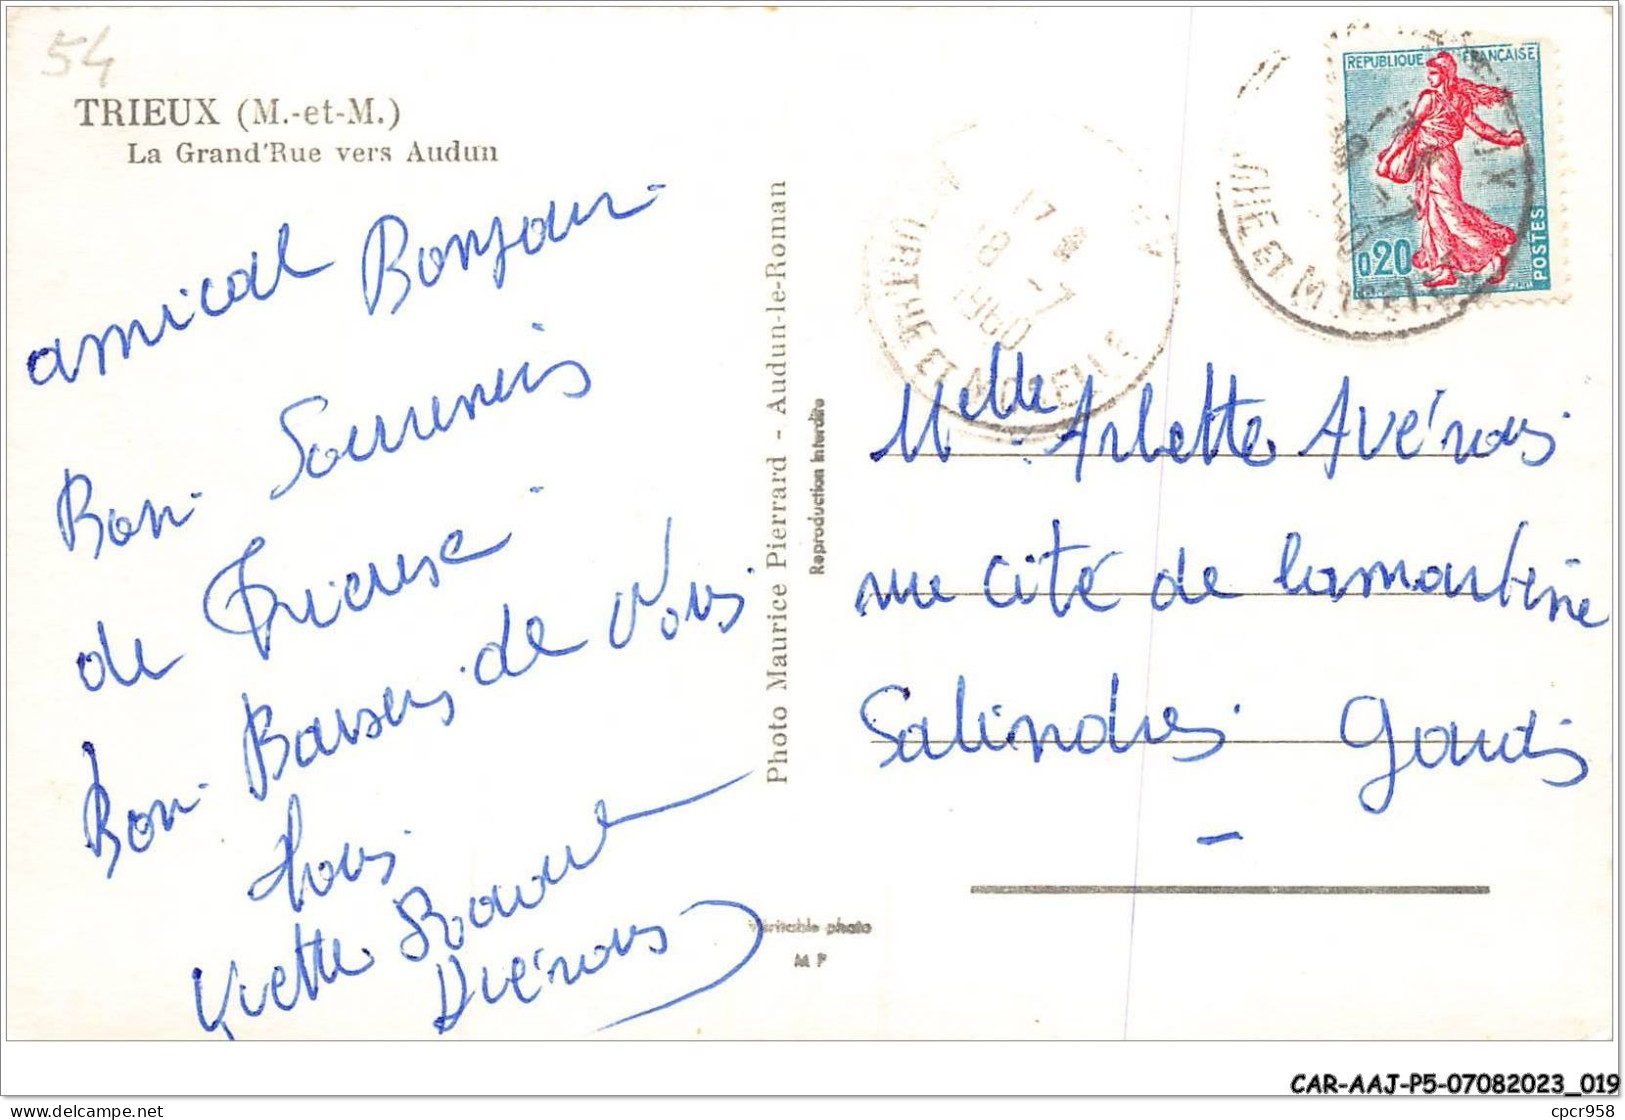 54
TRIEUX (M.-et-M.)
La Grand'Rue vers Audun
amical Bonjour
Bon Souvenirs
de Trieux
Bon Baisers de Vous
tous
Yvette Roland
Avérous
Photo Maurice Pierrard - Audun-le-Roman
Reproduction interdite
Véritable photo
M P
17 H
18 -7
1960
MEURTHE ET MOSELLE
REPUBLIQUE FRANÇAISE
0,20
POSTES
Melle Arlette Avérous
rue cité de lamartine
Salindres Gard
CAR-AAJ-P5-07082023_019
delcampe.net
cpcr958